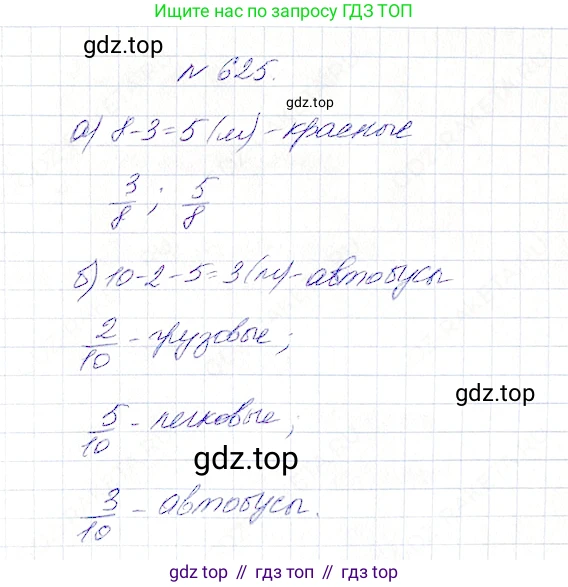 Ищите нас по запросу ГДЗ ТОП
gdz.top
N 625.
gdz.top
а) 8-3=5 (м) - красные
3/8 ; 5/8
б) 10-2-5=3 (м) - автобусы
2/10 - грузовые;
gdz.top
5/10 - легковые;
gdz.top
3/10 - автобусы.
gdz.top // гдз топ // гдз.top